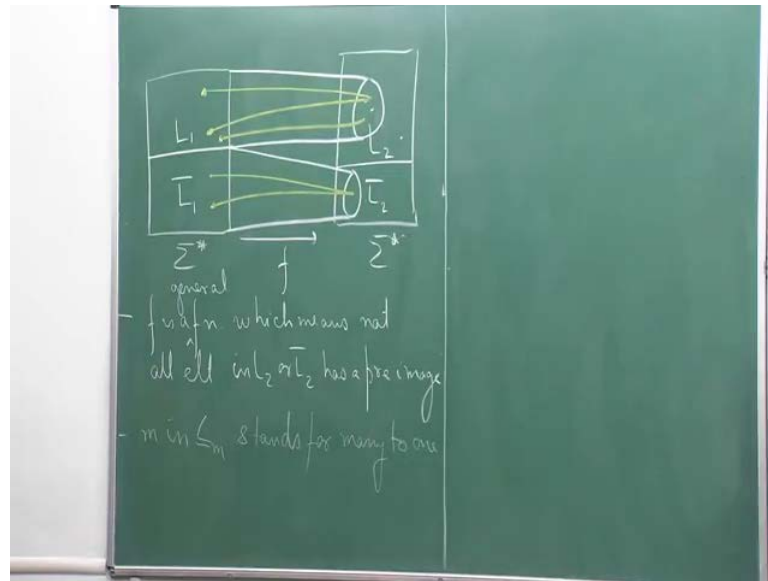 L₁ L₂
L̅₁ L̅₂
Σ* f Σ*
general
- f is a fn. which means not
all ell in L₂ or L̅₂ has a pre image
- m in ≤ₘ stands for many to one